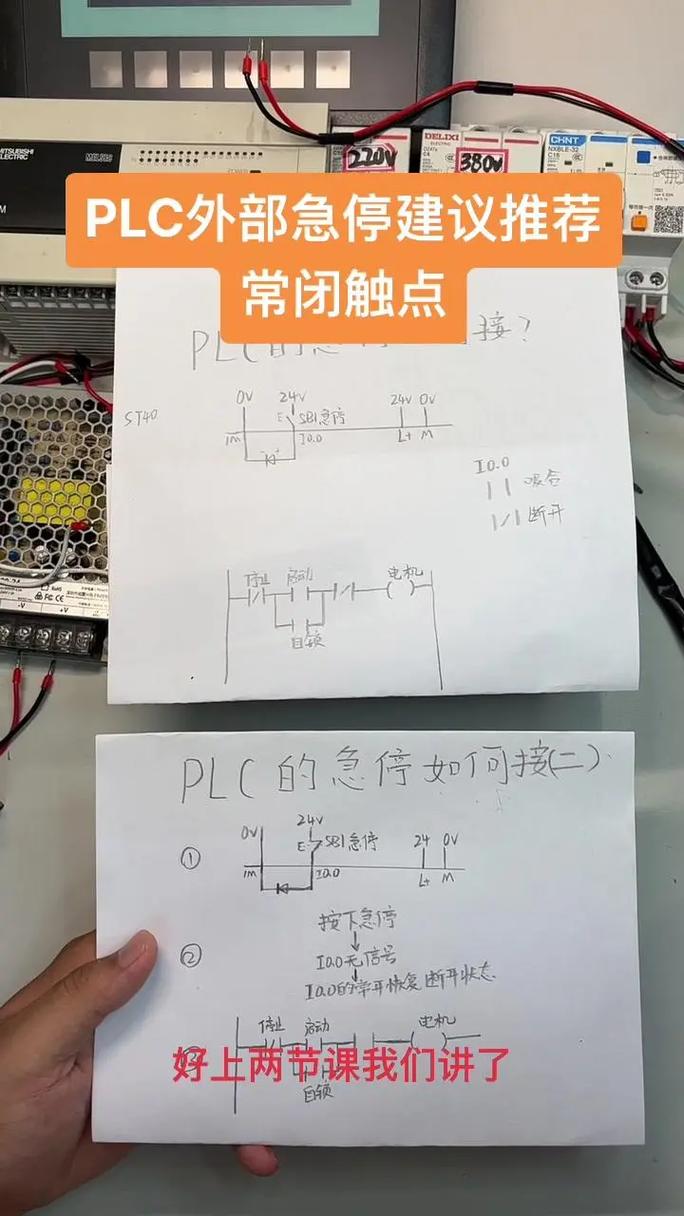 MITSUBISHI
ELECTRIC
MELSEC
220V
DELIXI
ELECTRIC
380V
CHNT
NXBLE-32
C16
PLC外部急停建议推荐
常闭触点
PLC的急
接?
ST40
0V 24V 24V 0V
E SB1急停
1M I0.0 L+ M
I0.0
吸合
断开
停止 启动 电机
自锁
RoHS
FC CE
-V +V
PLC的急停如何接(二)
①
0V 24V 24 0V
E SB1急停
1M I0.0 L+ M
按下急停
②
I0.0无信号
I0.0的常开恢复断开状态
停止 启动 电机
自锁
好上两节课我们讲了